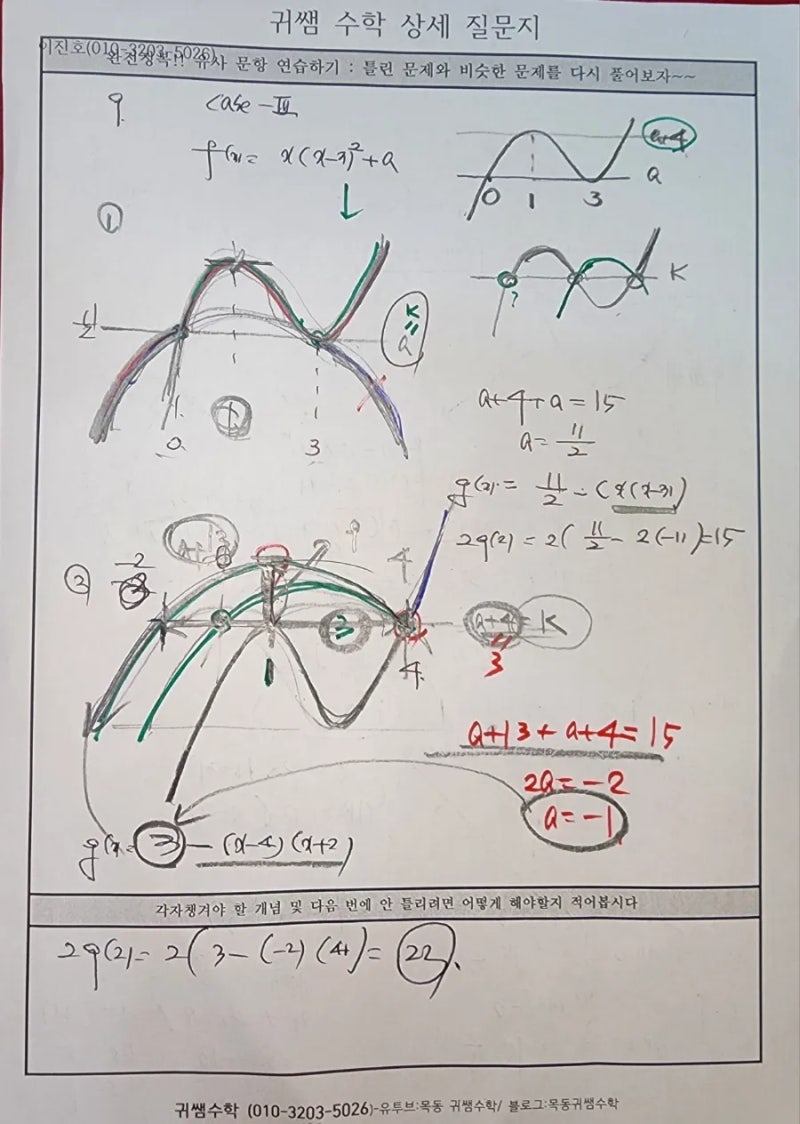 귀쌤 수학 상세 질문지
이진호(010-3203-5026)
완전정복!! 유사 문항 연습하기 : 틀린 문제와 비슷한 문제를 다시 풀어보자~~
9. Case-Ⅲ
f(x)= x(x-3)²+a
a+4
a
0 1 3
①
K
?
11/2
K
"
a
0 1 3
a+4+a=15
a= 11/2
g(x)= 11/2 - (x(x-3))
2g(2)= 2( 11/2 - 2(-1))=15
a+13
②
-2
4
3
a+4 = K
"
3
1
4
a+13+a+4=15
2a=-2
a=-1
g(x)= 3 - (x-4)(x+2)
각자챙겨야 할 개념 및 다음 번에 안 틀리려면 어떻게 해야할지 적어봅시다
2g(2)= 2( 3- (-2) (4))= 22.
귀쌤수학 (010-3203-5026)-유투브:목동 귀쌤수학/ 블로그:목동귀쌤수학